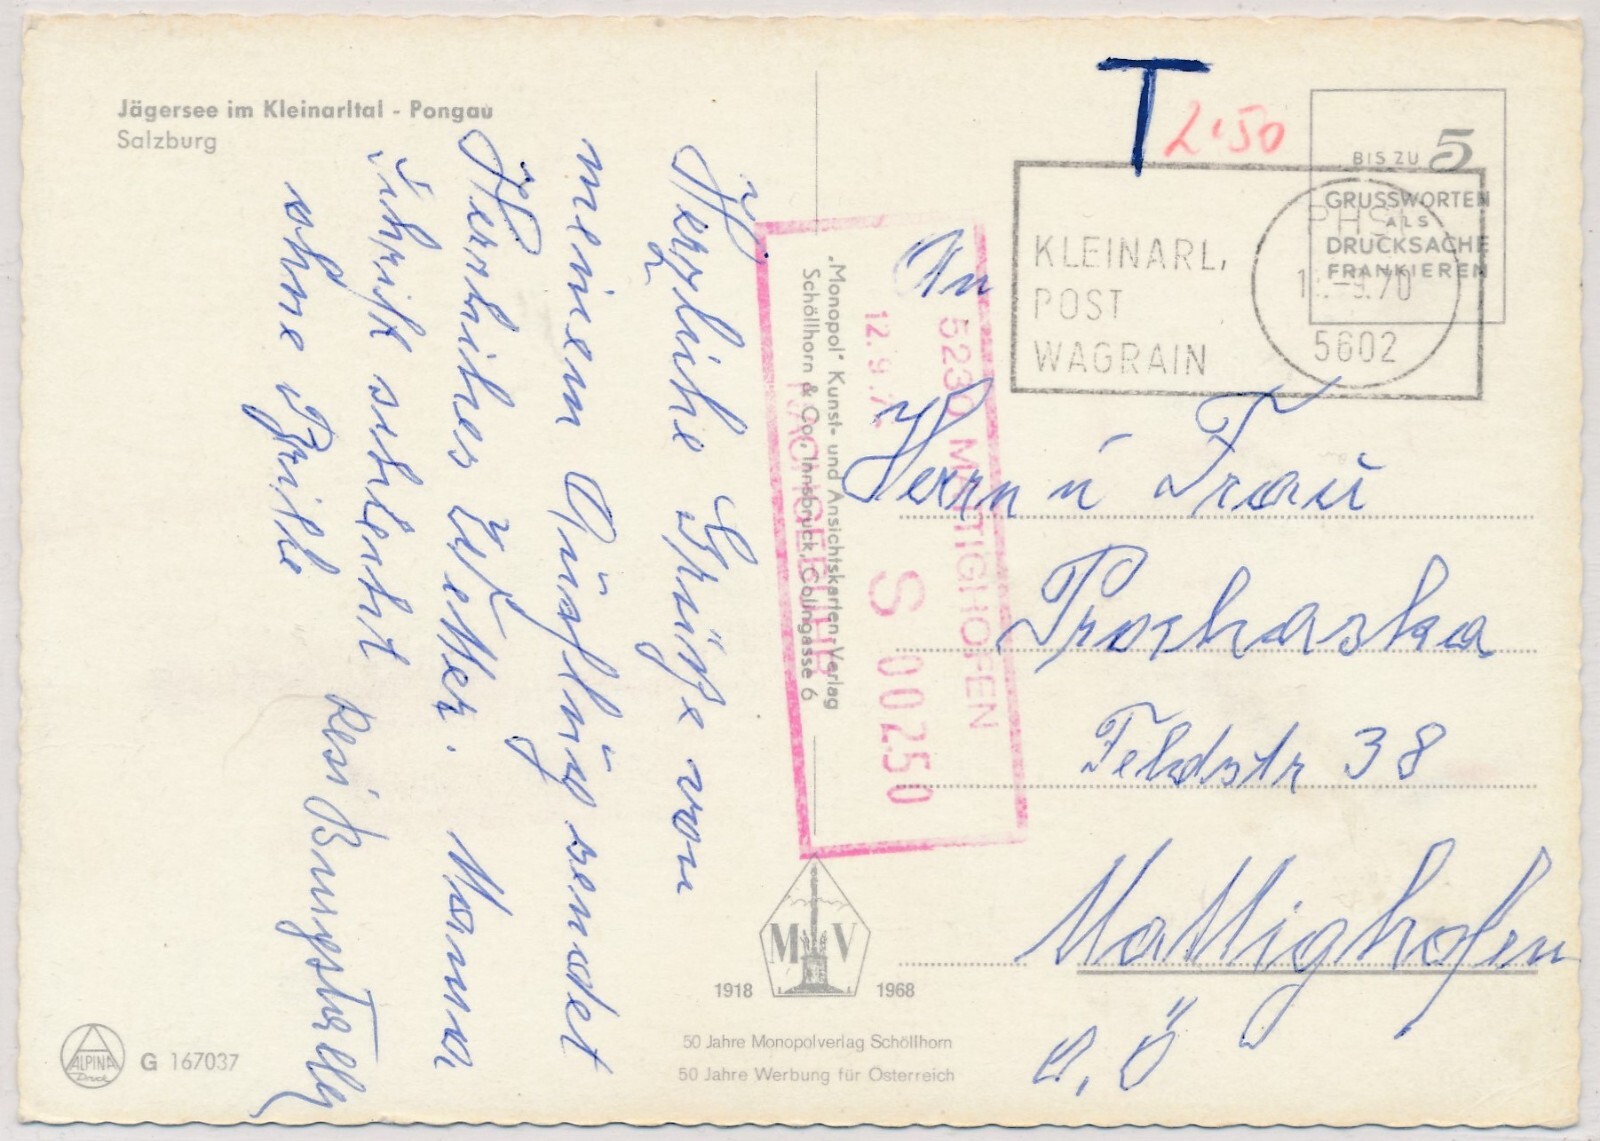 Jägersee im Kleinarltal - Pongau
Salzburg
Herzliche Grüße von
meinem Ausflug sendet
Herrliches Wetter. Mama
schrift schlecht Resi
ohne Brille
"Monopol" Kunst- und Ansichtskarten-Verlag
Schöllhorn & Co., Innsbruck, Collingasse 6
T 2.50
BIS ZU 5
GRUSSWORTEN
ALS
DRUCKSACHE
FRANKIEREN
KLEINARL,
POST
WAGRAIN
5602
5230 MATTIGHOFEN
12.9.7
S 00250
NACHGEBÜHR
An
Herrn u Frau
Prochaska
Feldstr 38
Mattighofen
O,Ö
M V
1918 1968
50 Jahre Monopolverlag Schöllhorn
50 Jahre Werbung für Österreich
ALPINA
Druck
G 167037